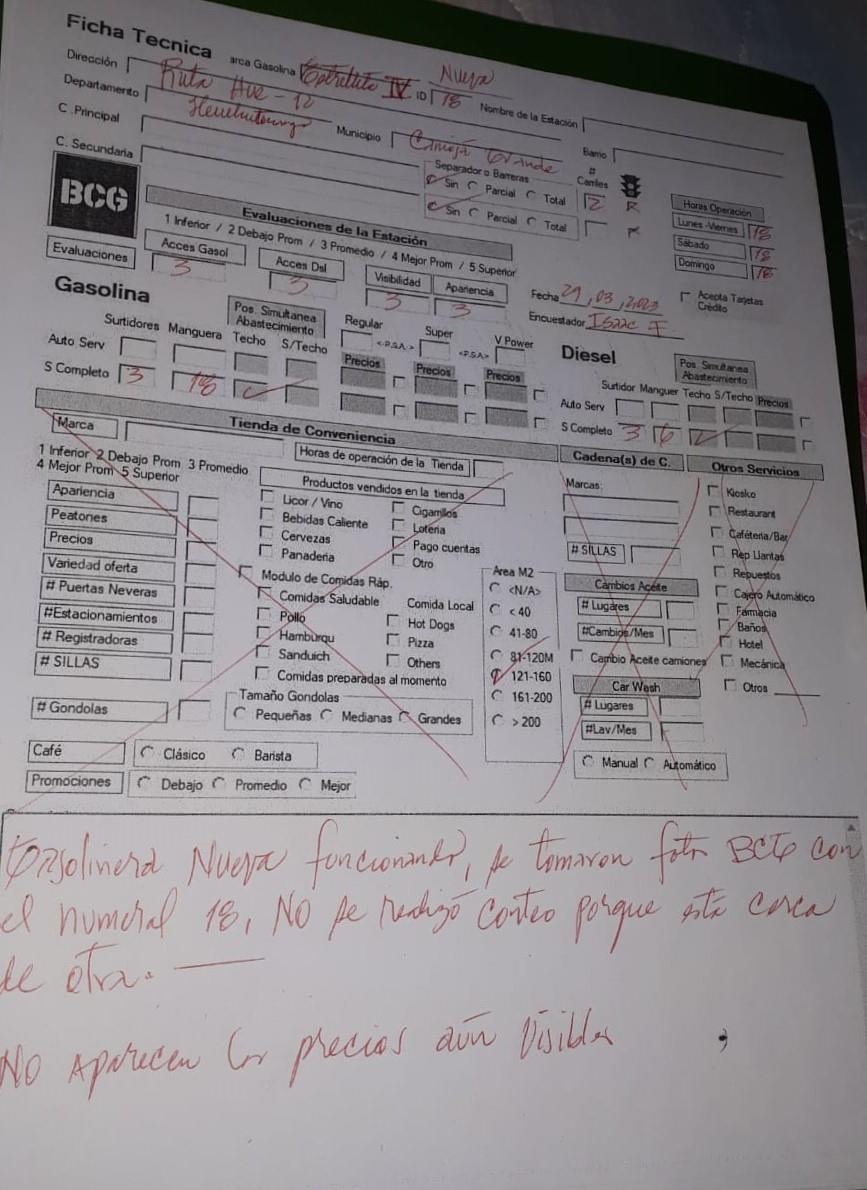 Ficha Tecnica
arca Gasolina Estrellita IV Nueva ID 18 Nombre de la Estación
Dirección Ruta Hue - 12
Departamento Huehuetenango Municipio Grande Barrio
C .Principal
C. Secundaria
Separador o Barreras # Carriles
Sin Parcial Total 2 R
Sin Parcial Total R
Horas Operación
Lunes -Viernes 18
Sábado 18
Domingo 18
BCG
Evaluaciones de la Estación
1 Inferior / 2 Debajo Prom / 3 Promedio / 4 Mejor Prom / 5 Superior
Evaluaciones
Acces Gasol 3
Acces Dsl 3
Visibilidad 3
Apariencia 3
Fecha 29, 03, 2023
Encuestador Isaac F
Acepta Tarjetas Crédito
Gasolina
Surtidores Manguera Pos. Simultanea Abastecimiento Techo S/Techo
Regular <-P.S.A.-> Super <-P.S.A.-> V Power
Precios Precios Precios
Auto Serv
S Completo 3 18
Diesel
Pos. Simultanea Abastecimiento
Surtidor Manguer Techo S/Techo Precios
Auto Serv
S Completo 3 6
Tienda de Conveniencia
Marca
Horas de operación de la Tienda
1 Inferior 2 Debajo Prom 3 Promedio
4 Mejor Prom 5 Superior
Apariencia
Peatones
Precios
Variedad oferta
# Puertas Neveras
#Estacionamientos
# Registradoras
# SILLAS
# Gondolas
Productos vendidos en la tienda
Licor / Vino Cigarrillos
Bebidas Caliente Loteria
Cervezas Pago cuentas
Panaderia Otro
Modulo de Comidas Ráp.
Comidas Saludable Comida Local
Pollo Hot Dogs
Hamburqu Pizza
Sanduich Others
Comidas preparadas al momento
Tamaño Gondolas
Pequeñas Medianas Grandes
Area M2
<N/A>
< 40
41-80
81-120M
121-160
161-200
> 200
Cadena(s) de C.
Marcas:
# SILLAS
Cambios Aceite
# Lugares
#Cambios/Mes
Cambio Aceite camiones
Car Wash
# Lugares
#Lav/Mes
Manual Automático
Otros Servicios
Kiosko
Restaurant
Caféteria/Bar
Rep Llantas
Repuestos
Cajero Automático
Farmacia
Baños
Hotel
Mecánica
Otros
Café Clásico Barista
Promociones Debajo Promedio Mejor
Gasolinera Nueva funcionando, se tomaron foto BCG con
el numeral 18, NO se realizó conteo porque está cerca
de otra.
NO Aparecen los precios aún Visibles